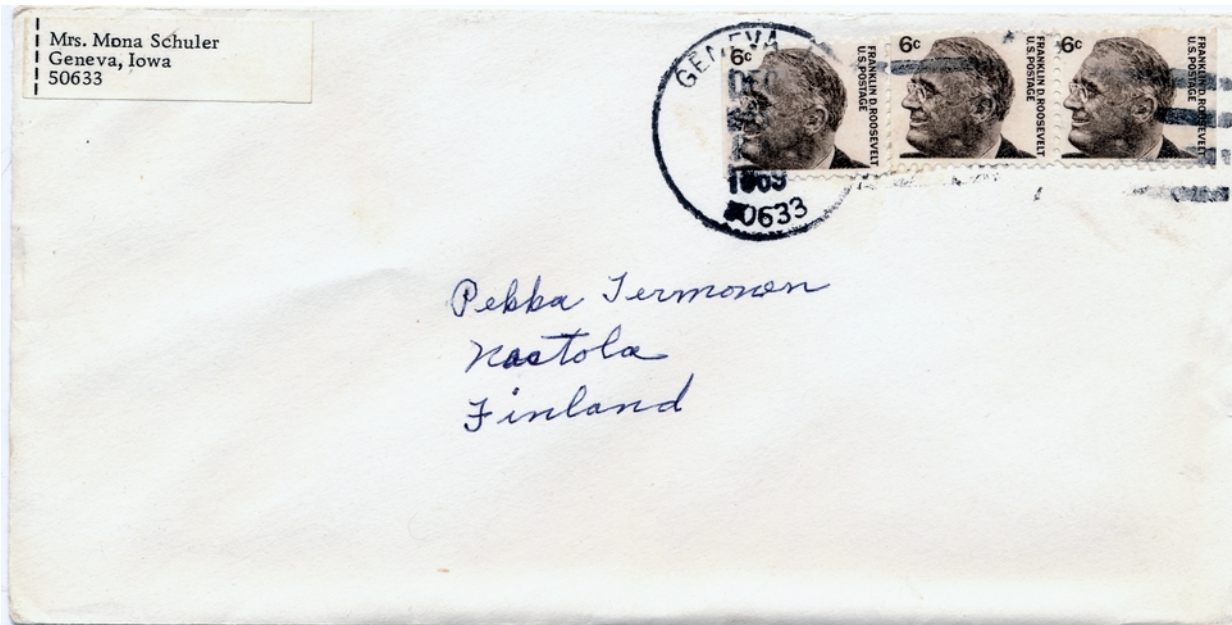 Mrs. Mona Schuler
Geneva, Iowa
50633
GENEVA
DEC
1969
50633
6c
FRANKLIN D. ROOSEVELT
U.S. POSTAGE
6c
FRANKLIN D. ROOSEVELT
U.S. POSTAGE
6c
FRANKLIN D. ROOSEVELT
U.S. POSTAGE
Pekka Termonen
Nastola
Finland